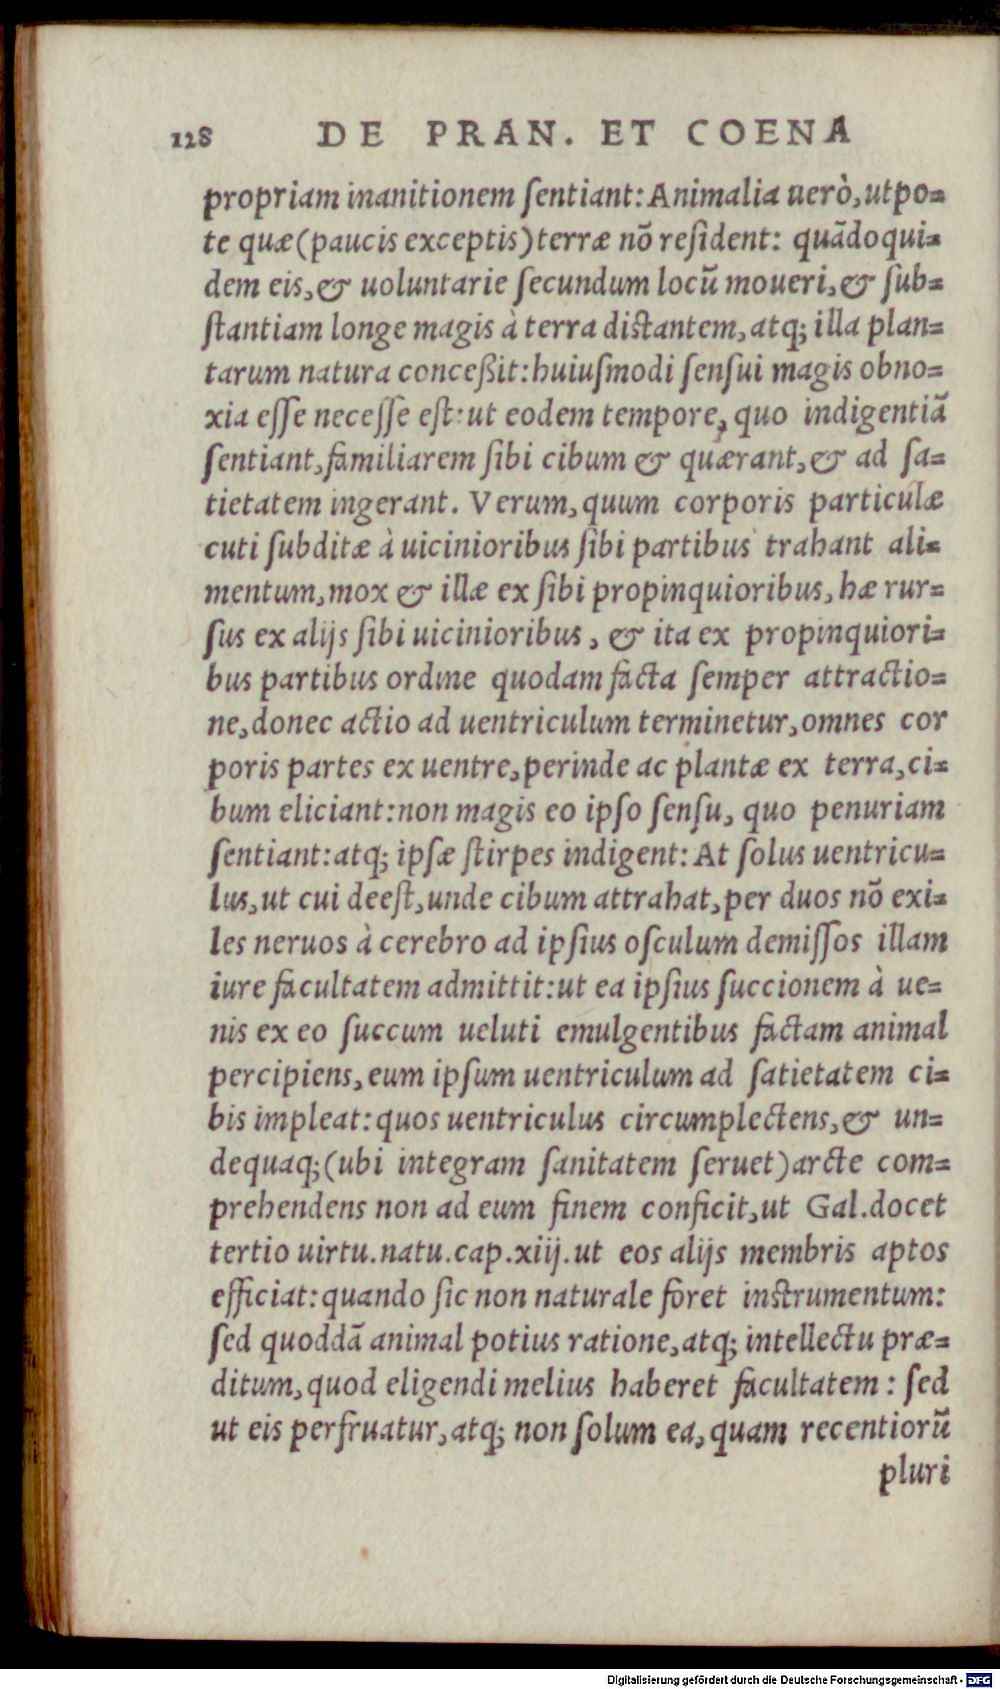 128 DE PRAN. ET COENA
propriam inanitionem ſentiant: Animalia uerò, utpo=
te quæ (paucis exceptis) terræ nõ reſident: quãdoqui=
dem eis, & uoluntarie ſecundum locũ moueri, & ſub=
ſtantiam longe magis à terra diſtantem, atq; illa plan=
tarum natura conceßit: huiuſmodi ſenſui magis obno=
xia eſſe neceſſe eſt: ut eodem tempore, quo indigentiã
ſentiant, familiarem ſibi cibum & quærant, & ad ſa=
tietatem ingerant. Verum, quum corporis particulæ
cuti ſubditæ à uicinioribus ſibi partibus trahant ali=
mentum, mox & illæ ex ſibi propinquioribus, hæ rur=
ſus ex alijs ſibi uicinioribus, & ita ex propinquiori=
bus partibus ordine quodam facta ſemper attractio=
ne, donec actio ad uentriculum terminetur, omnes cor
poris partes ex uentre, perinde ac plantæ ex terra, ci=
bum eliciant: non magis eo ipſo ſenſu, quo penuriam
ſentiant: atq; ipſæ ſtirpes indigent: At ſolus uentricu=
lus, ut cui deeſt, unde cibum attrahat, per duos nõ exi=
les neruos à cerebro ad ipſius oſculum demiſſos illam
iure facultatem admittit: ut ea ipſius ſuccionem à ue=
nis ex eo ſuccum ueluti emulgentibus factam animal
percipiens, eum ipſum uentriculum ad ſatietatem ci=
bis impleat: quos uentriculus circumplectens, & un=
dequaq; (ubi integram ſanitatem ſeruet) arcte com=
prehendens non ad eum finem conficit, ut Gal. docet
tertio uirtu. natu. cap. xiij. ut eos alijs membris aptos
efficiat: quando ſic non naturale foret inſtrumentum:
ſed quoddã animal potius ratione, atq; intellectu præ=
ditum, quod eligendi melius haberet facultatem: ſed
ut eis perfruatur, atq; non ſolum ea, quam recentiorũ
pluri
Digitalisierung gefördert durch die Deutsche Forschungsgemeinschaft - DFG